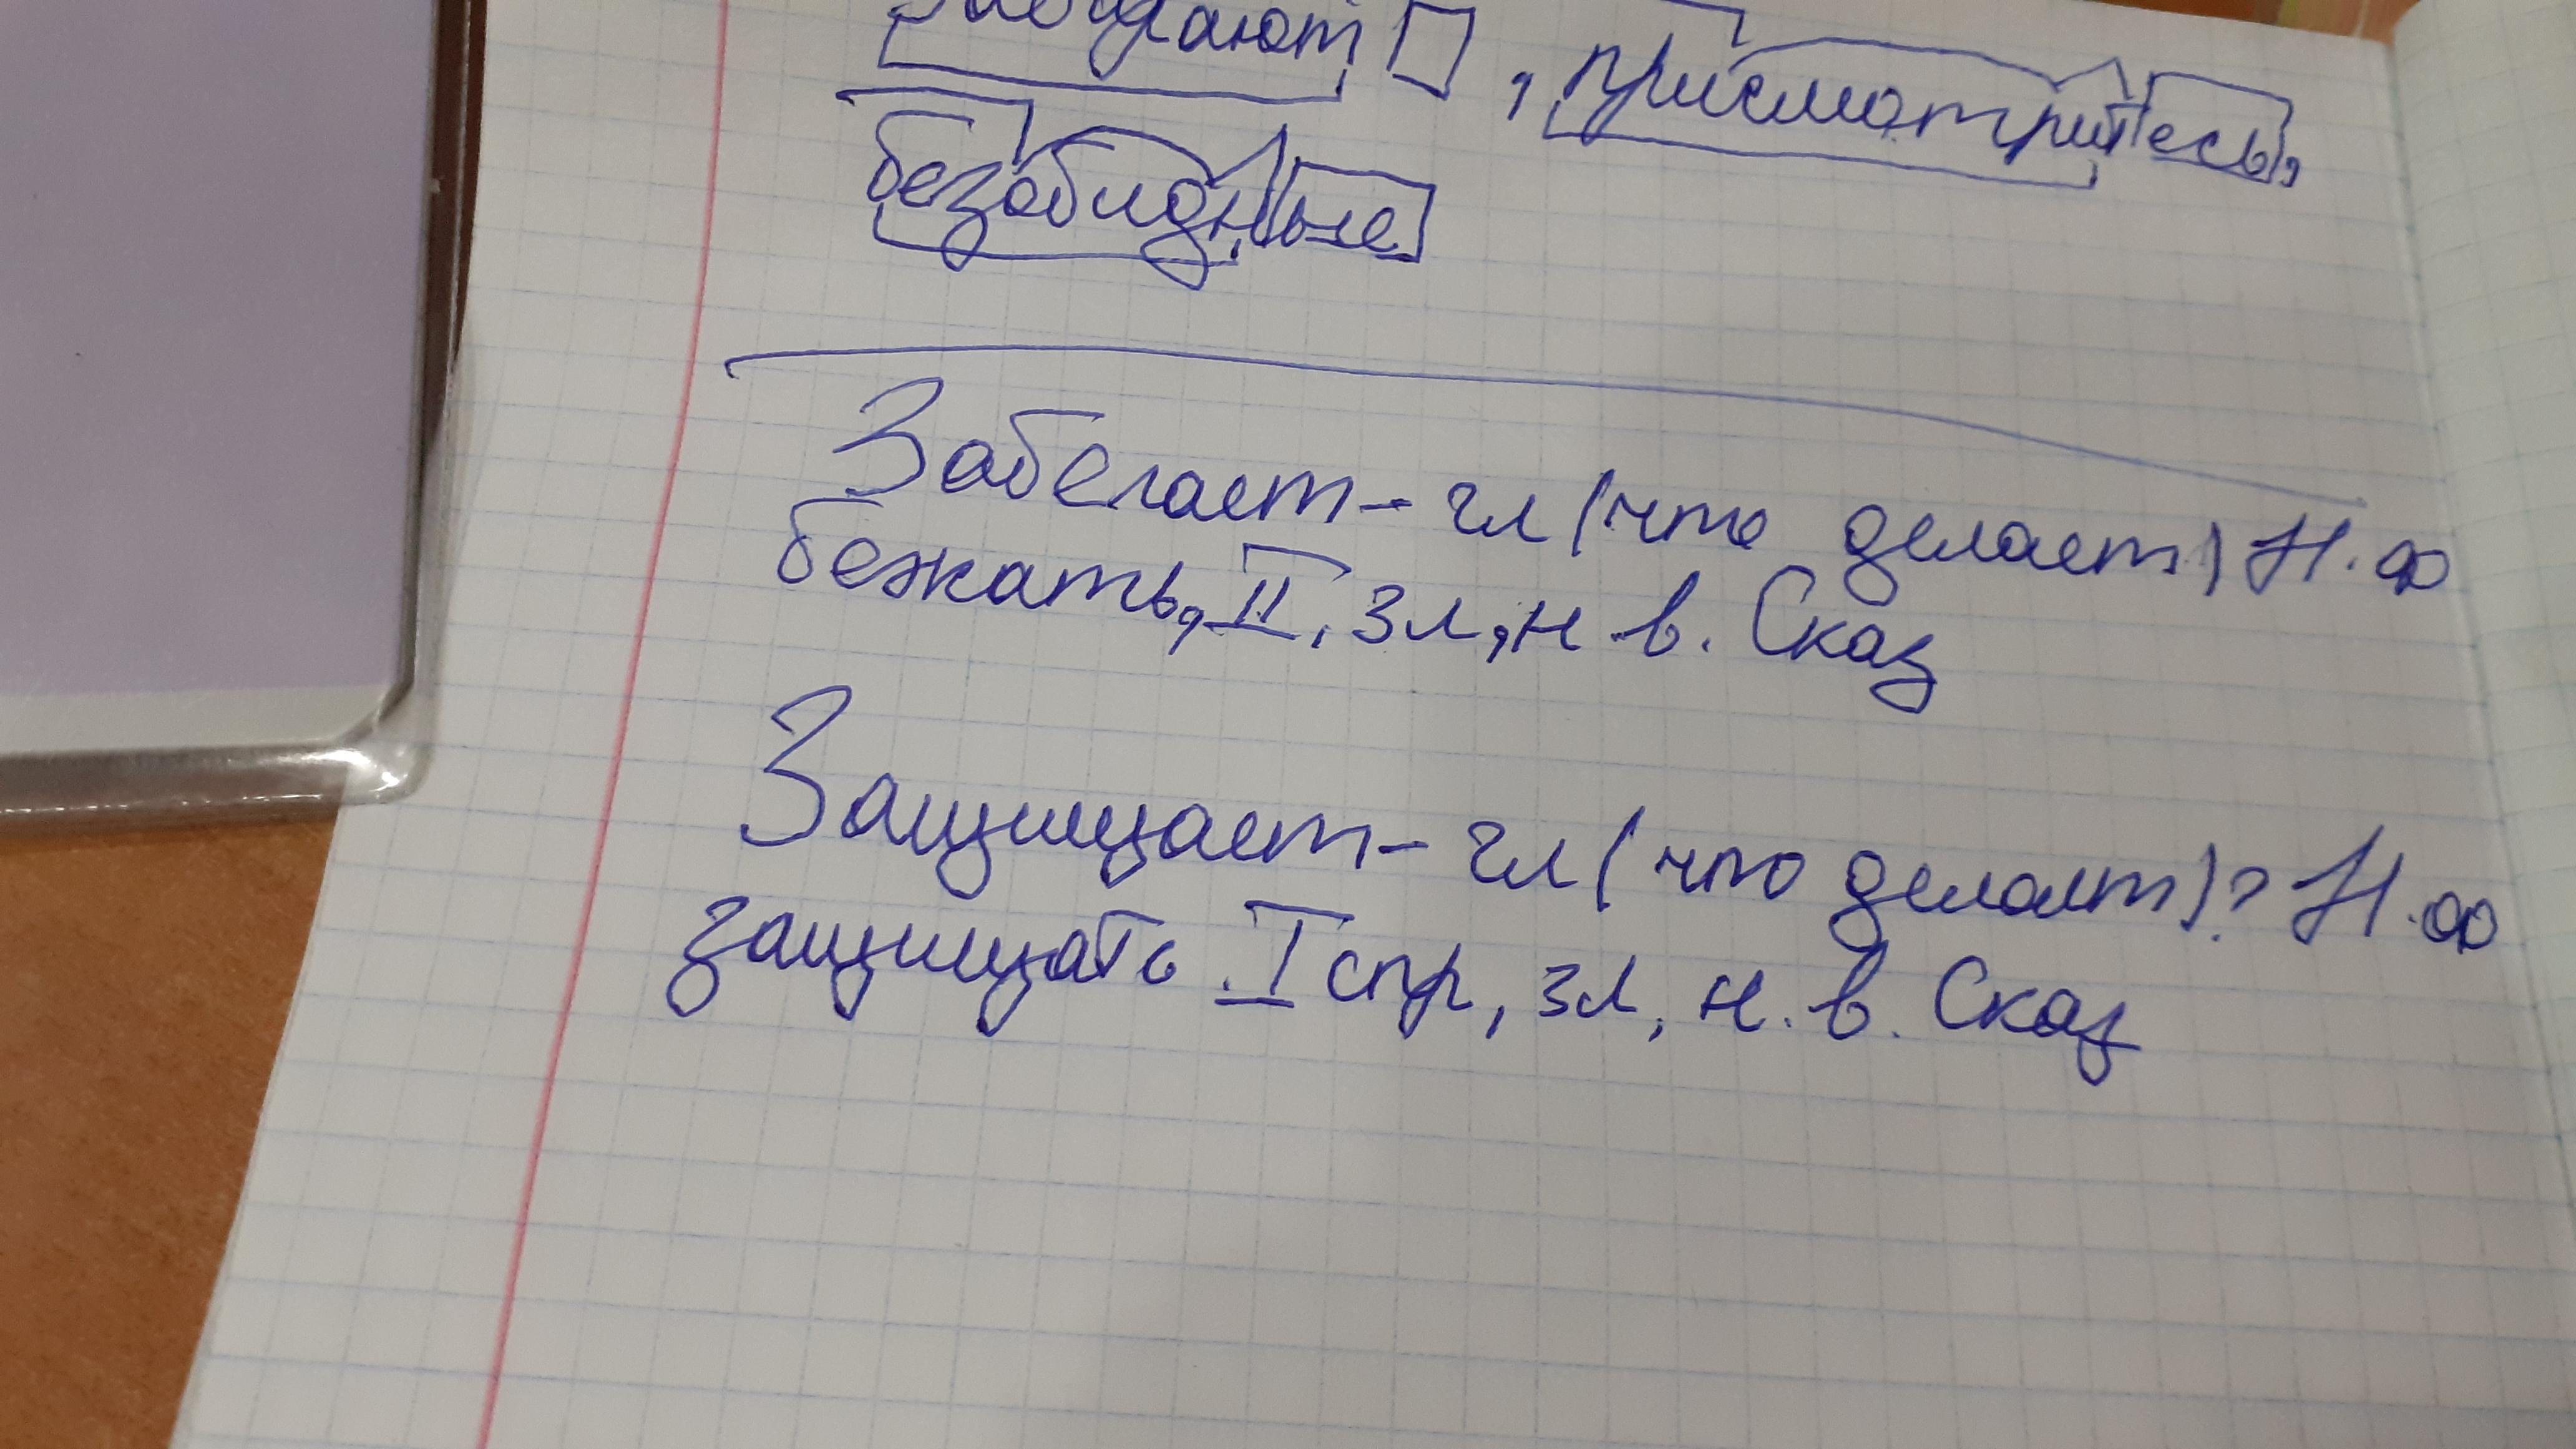 , присмотритесь,
безобидные
Забегает - гл (что делает) Н.ф
бежать, II, 3 л, н.в. Сказ
Защищает - гл (что делает)? Н.ф
защищать I спр, 3л, н.в. Сказ